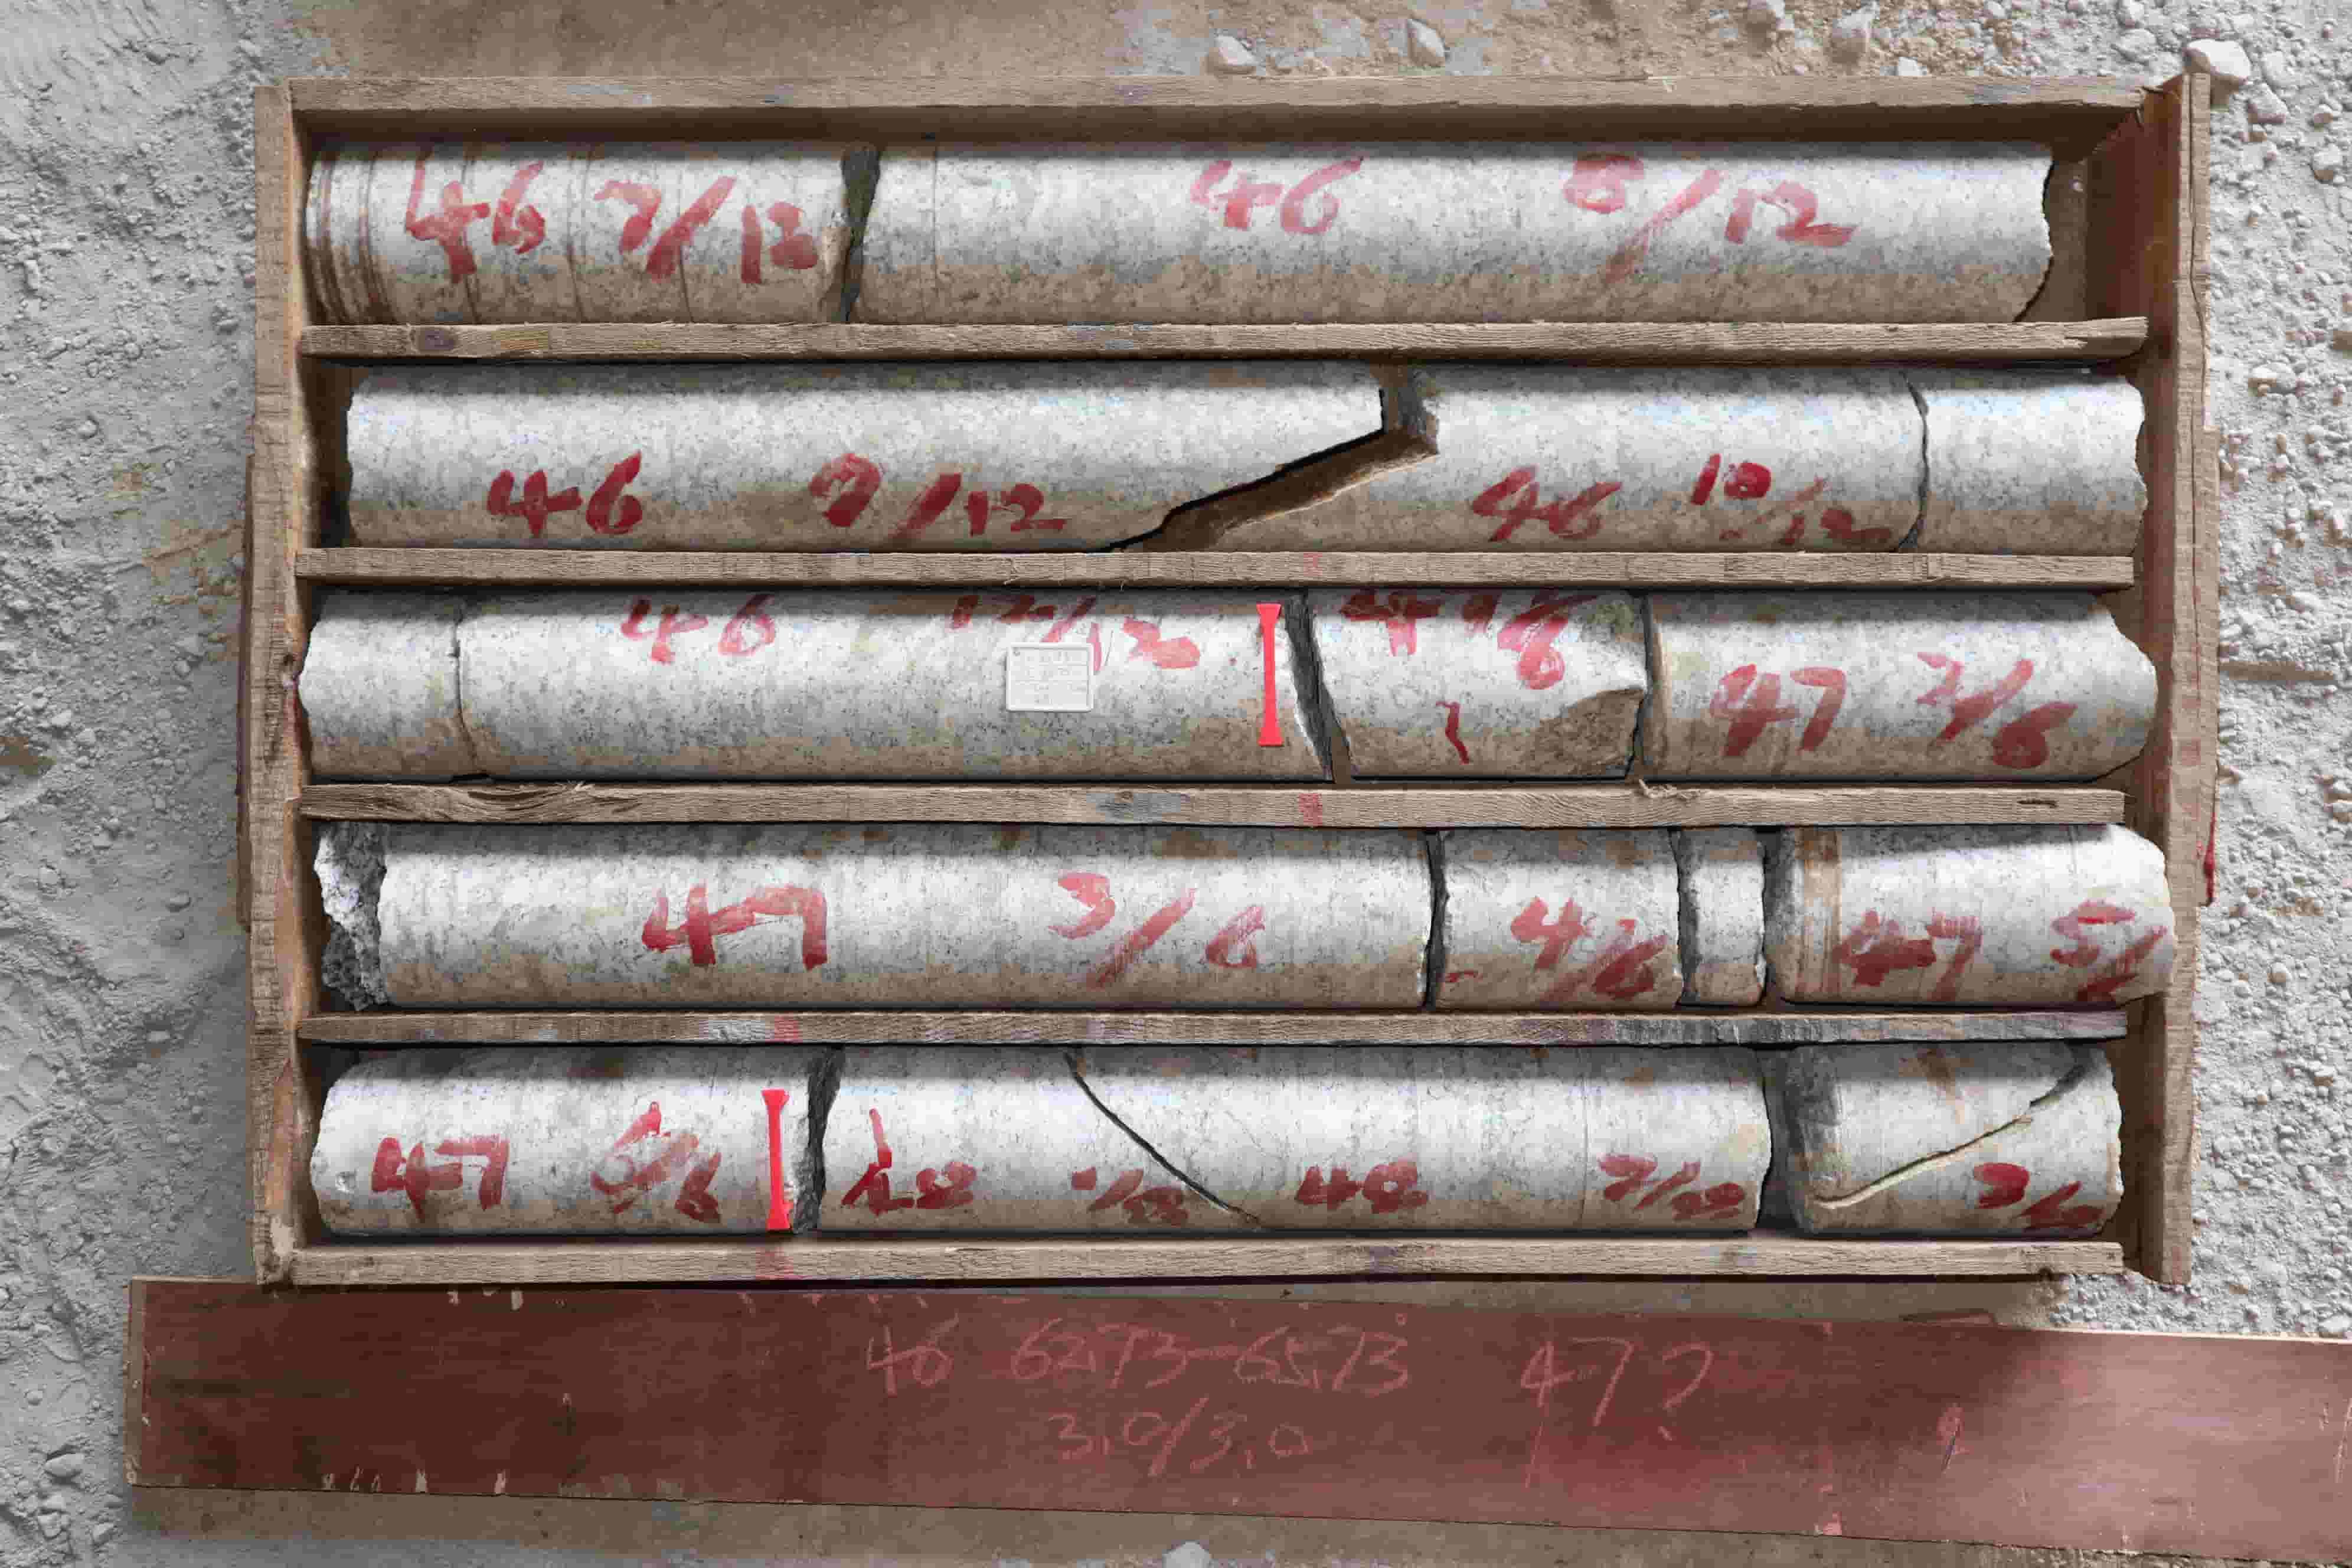 46 7/12
46 8/12
46 9/12
46 10/12
46 12/12
47 1/6
47 2/6
47 3/6
4/6
47 5/
47 5/6
48
48
46 62.73-65.73 47
3.0/3.0